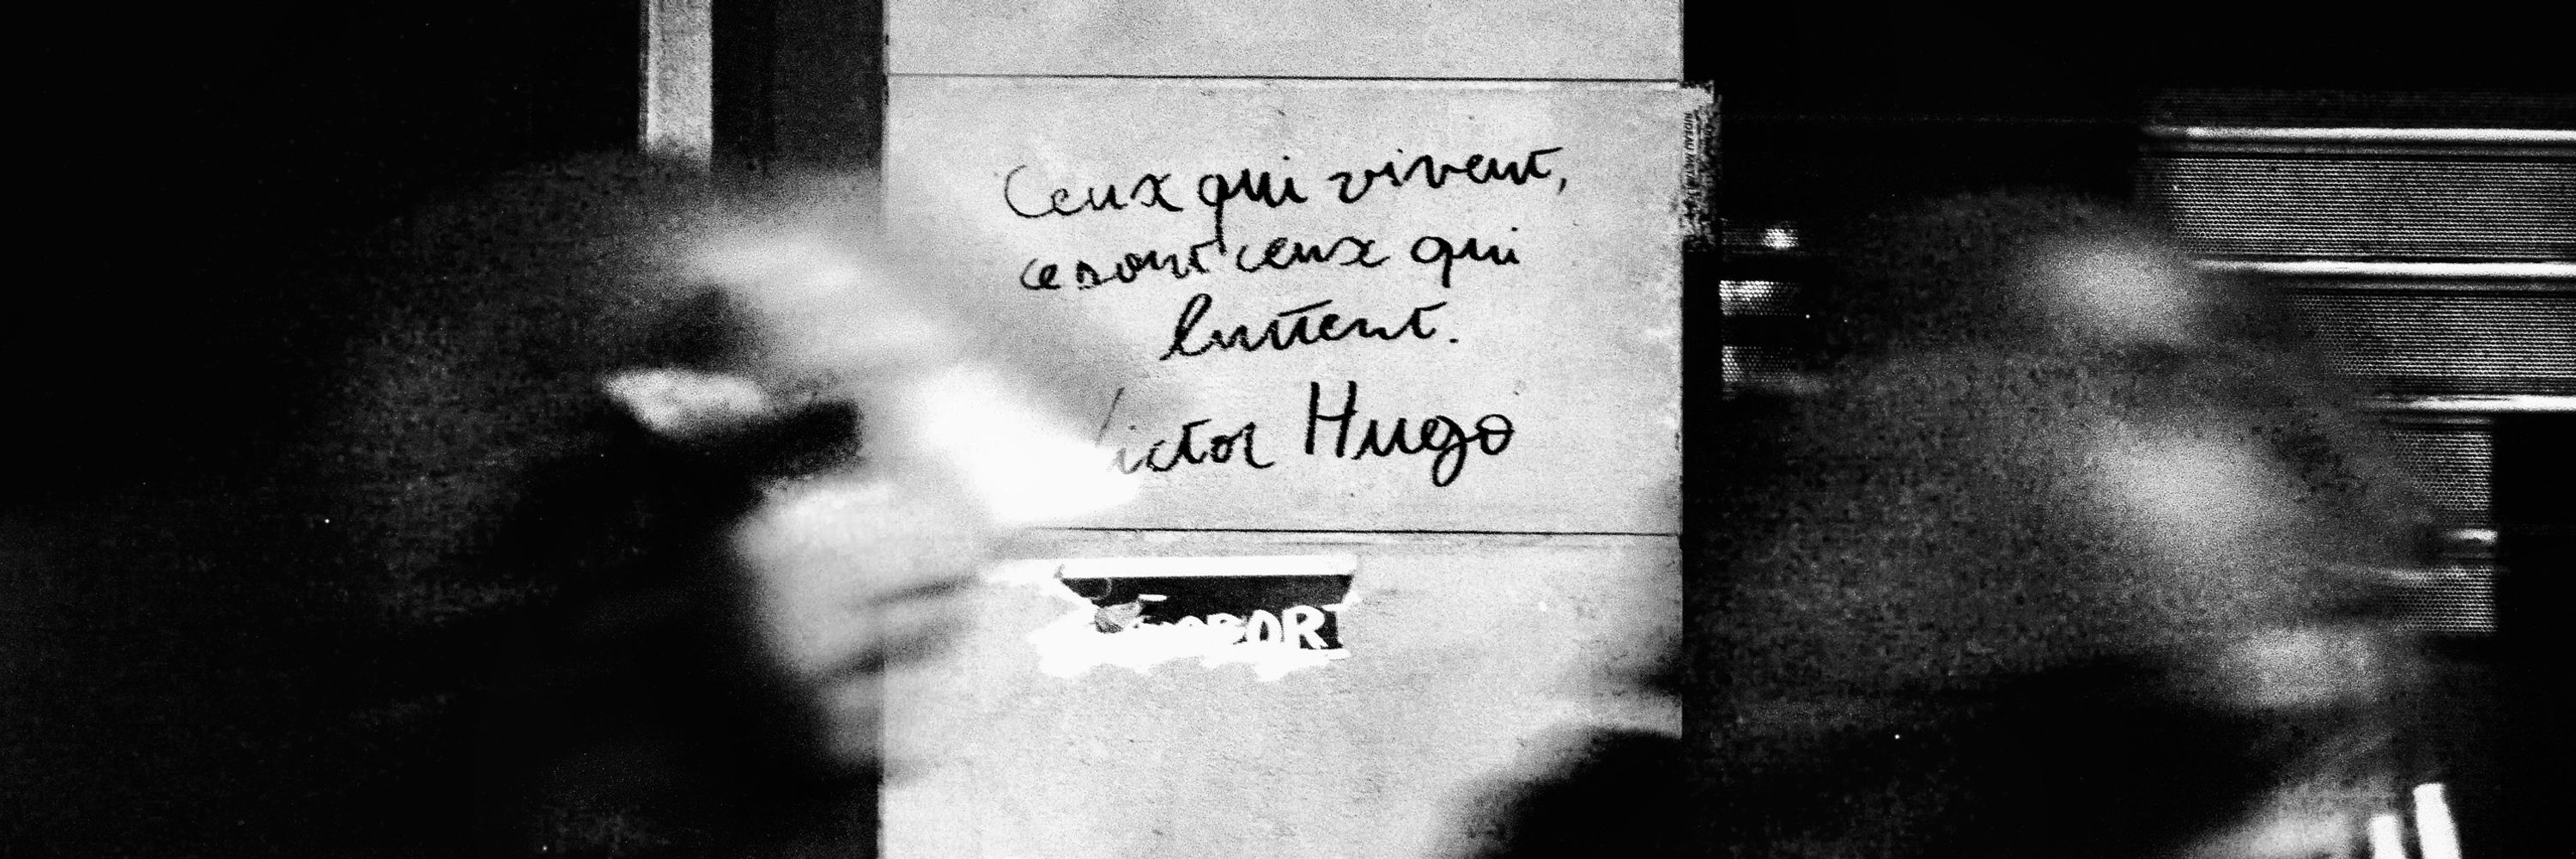 Ceux qui vivent,
ce sont ceux qui
luttent.
Victor Hugo